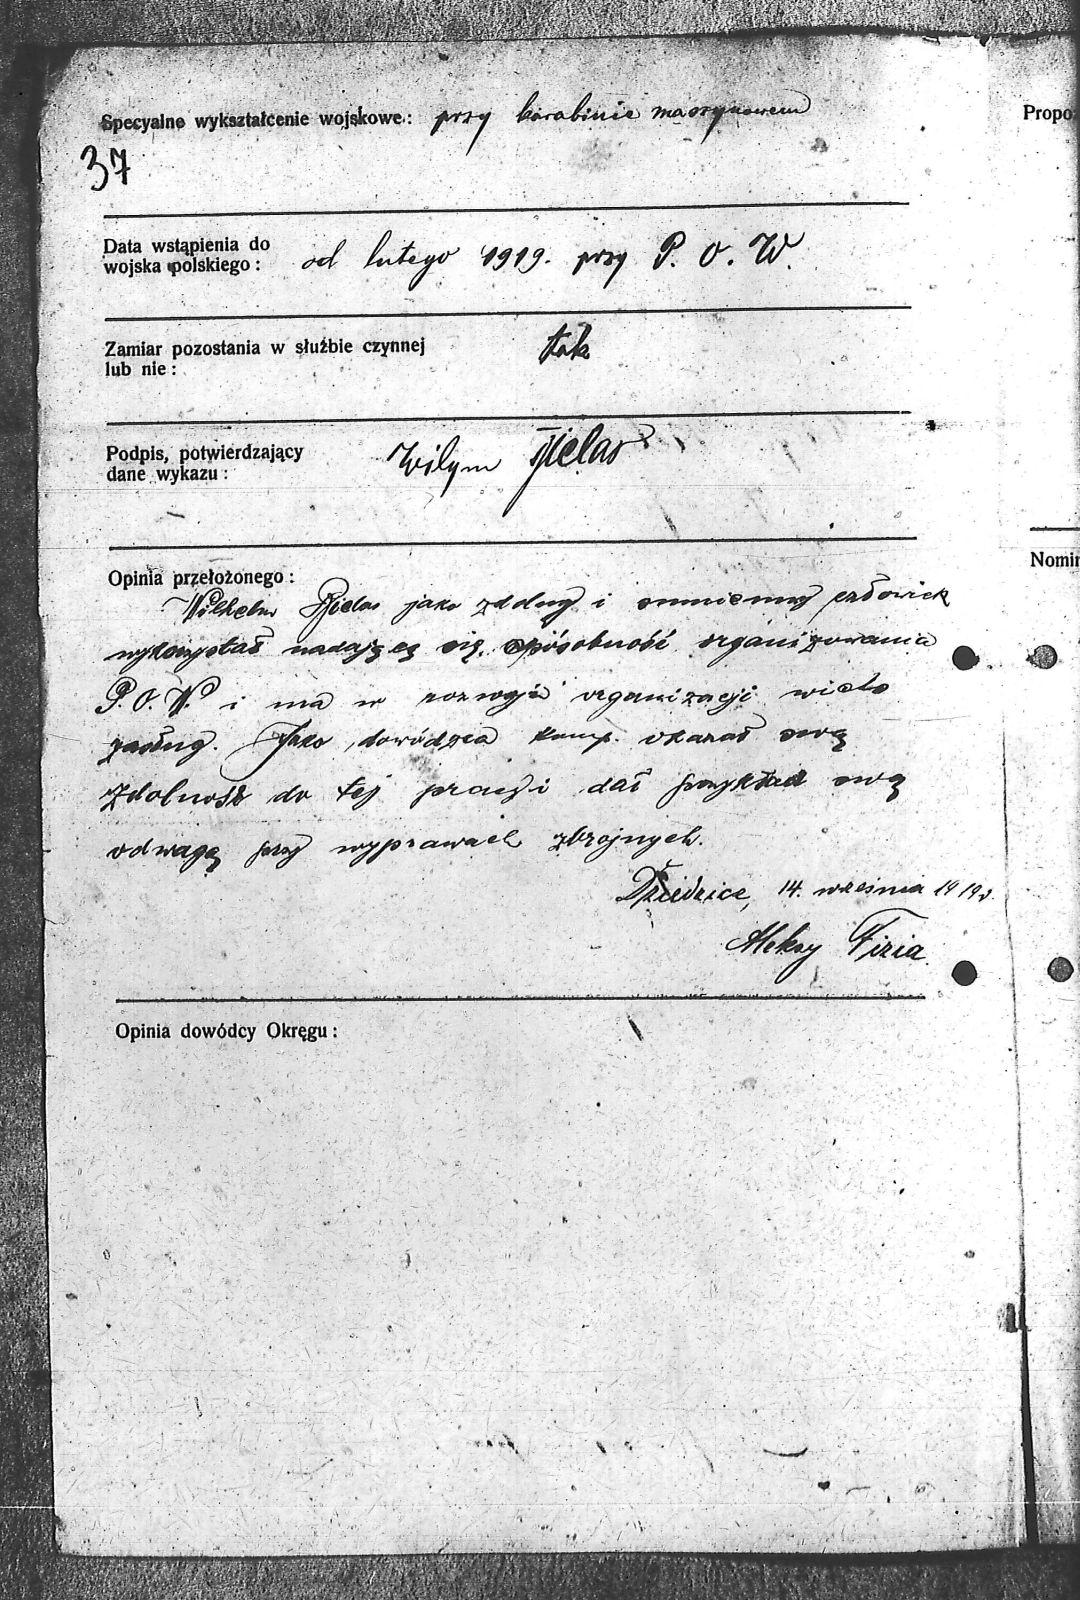 Specyalne wykształcenie wojskowe: przy karabinie maszynowem
Propo
37
Data wstąpienia do
wojska polskiego: od lutego 1919. przy P. O. W.
Zamiar pozostania w służbie czynnej tak
lub nie:
Podpis, potwierdzający
dane wykazu: Wilym
Opinia przełożonego:
Nomin
Wilhelm jako zdolny i sumienny człowiek
wykorzystał nadającą się sposobność organizowania
P.O.W. i ma w rozwoju organizacji wiele
zasług. Jako dowódzca komp. okazał swą
zdolność do tej pracy i dał przykład swą
odwagą przy wyprawach zbrojnych.
Dziedzice, 14. września 1919
Aleksy Fizia.
Opinia dowódcy Okręgu: